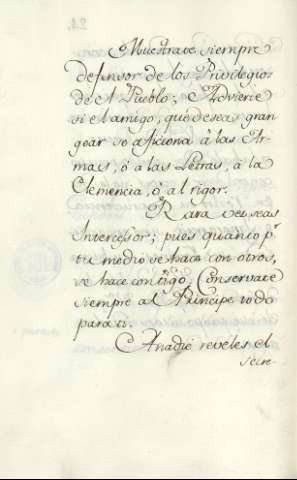 Muestrate siempre
defensor de los Privilegios
de el Pueblo; Advierte
si el amigo, que deseas gran
gear se aficiona à las Ar-
mas, ò a las Letras, à la
Clemencia, ò al rigor.
Rara vez seas
Intercesor; pues quanto pr
tu medio se hace con otros,
se hace contigo. Conservate
siempre al Principe todo
para ti.
A nadie reveles el
secre-